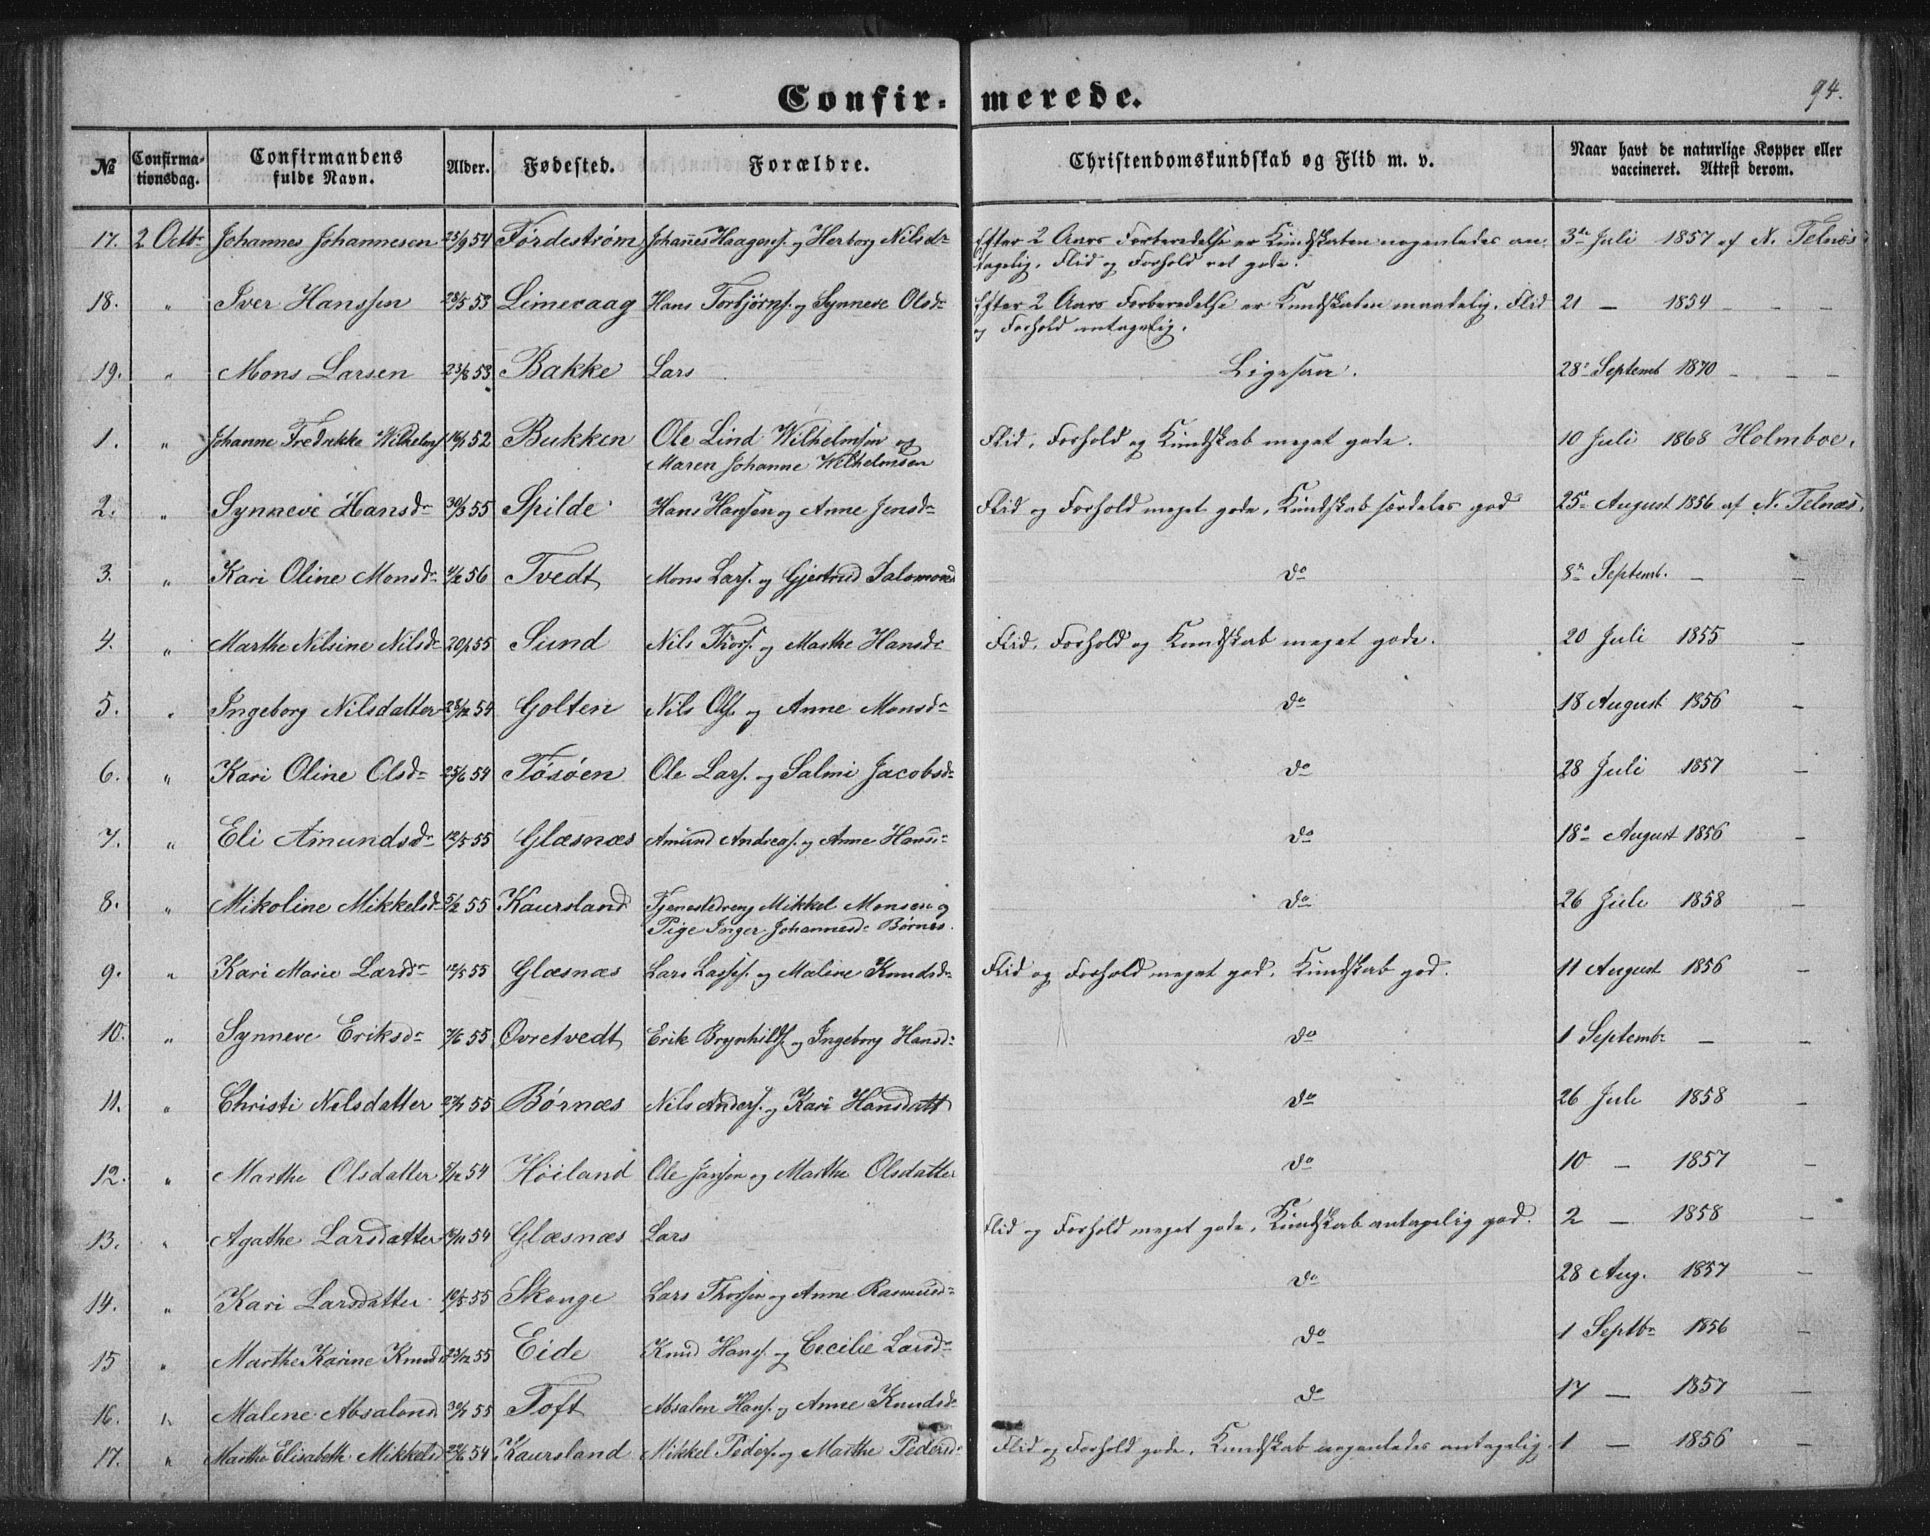 Confirmerede.
94.
№ Confirmationsdag. Confirmandens fulde Navn. Alder. Fødested. Forældre. Christendomskundskab og Flid m. v. Naar havt de naturlige Kopper eller vaccineret. Attest derom.
17. 2 Octbr Johannes Johannesen 25/9 54 Førdestrøm Johannes Haagens. og Herborg Nilsdr Efter 2 Aars Forberedelse er Kundskaben nogenledes an- 3die Juli 1857 af N. Telnæs
tagelig. Flid og Forhold ret gode.
18. " Iver Hanssen 28/5 53 Limevaag Hans Torbjørns. og Synneve Olsdr Efter 2 Aars Forberedelse er Kundskaben maadelig. Flid 21 — 1854 - - -
og Forhold antagelig.
19. " Mons Larsen 23/8 53 Bakke Lars Ligesaa. 28. Septemb 1870 - - -
1. " Johanne Fredrikke Wilhelms 16/1 52 Bukken Ole Lind Wilhelmsen og Flid, Forhold og Kundskab meget gode. 10 Juli 1868 Holmboe.
Maren Johanne Wilhelmsen
2. " Synneve Hansdr 30/3 55 Spilde Hans Hansen og Anne Jensdr Flid og Forhold meget gode, Kundskab særdeles god 25. August 1856 af N. Telnæs.
3. " Kari Oline Monsdr 1/2 56 Tvedt Mons Lars. og Gjertrud Salomonsd do 8. Septemb. — -
4. " Marthe Nilsine Nilsdr 20/1 55 Sund Nils Thors. og Marthe Hansdr Flid, Forhold og Kundskab meget gode. 20 Juli 1855 -
5. " Ingeborg Nilsdatter 28/12 54 Golten Nils Ols. og Anne Monsdr do 18 August 1856 -
6. " Kari Oline Olsdr 25/6 54 Tøsøen Ole Lars. og Salmi Jacobsdr do 28 Juli 1857 -
7. " Eli Amundsdr 12/5 55 Glæsnæs Amund Andreas. og Anne Hansdr do 18. August 1856 -
8. " Mikoline Mikkelsdr 5/2 55 Kaursland Tjenestedreng Mikkel Monsen og do 26 Juli 1858 -
Pige Inger Johannesdr Børnæs.
9. " Kari Marie Larsdr 12/5 55 Glæsnæs Lars Lasses. og Malene Knudsdr Flid og Forhold meget god. Kundskab god. 11 August 1856 -
10. " Synneve Eriksdr 7/6 55 Ovretvedt Erik Brynhilds. og Ingeborg Hansdr do 1 Septembr — -
11. " Christi Nilsdatter 27/1 55 Børnæs Nils Anders. og Kari Hansdatt do 26 Juli 1858 -
12. " Marthe Olsdatter 7/12 54 Høiland Ole Jansen og Marthe Olsdatter do 10 — 1857 -
13. " Agathe Larsdatter 19/11 54 Glæsnæs Lars Flid og Forhold meget gode, Kundskab antagelig god. 2 — 1858 -
14. " Kari Larsdatter 12/5 55 Skouge Lars Thorsen og Anne Rasmusdr do 28 Aug. 1857 -
15 " Marthe Karine Knudsd 23/12 55 Eide Knud Hans. og Cecilie Larsdr do 1 Septbr 1856 -
16. " Malene Absalonsd 30/7 55 Toft Absalon Hans. og Anne Knudsdr do 17 — 1857 -
17. " Marthe Elisabeth Mikkelsd 22/6 54 Kaursland Mikkel Peders. og Marthe Pedersdr Flid og Forhold gode, Kundskab nogenledes antagelig. 1 — 1856 -